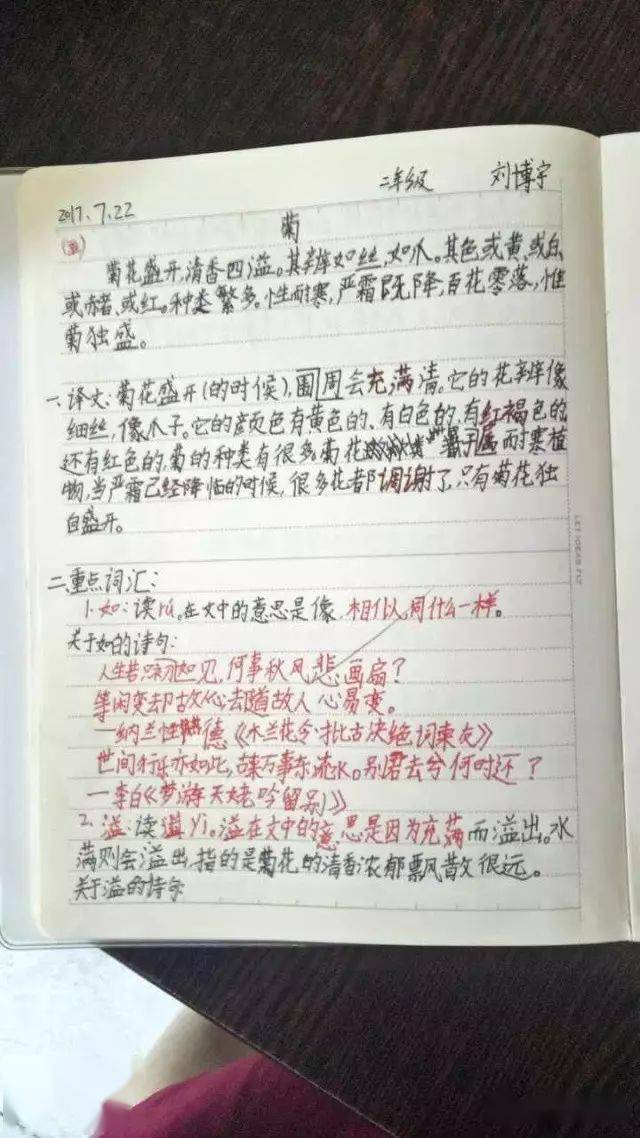 二年级 刘博宇
2017.7.22
菊
菊花盛开,清香四溢。其瓣如丝,如爪。其色或黄、或白、
或赭、或红。种类繁多。性耐寒,严霜既降,百花零落,惟
菊独盛。
一、译文:菊花盛开(的时候),围周会充满清。它的花瓣像
细丝,像爪子。它的颜色有黄色的、有白色的,有红褐色的
还有红色的,菊的种类有很多菊花 属于属耐寒植
物,当严霜已经降临的时候,很多花都凋谢了,只有菊花独
自盛开。
二、重点词汇:
1.如:读rú。在文中的意思是像,相似,同什么一样。
关于如的诗句:
人生若只初如见,何事秋风悲画扇?
等闲变却故人心,去道故人心易变。
—纳兰性德《木兰花令·拟古决绝词柬友》
世间行乐亦如此,古来万事东流水。别君去兮何时还?
—李白《梦游天姥吟留别》
2.溢:读yì。溢在文中的意思是因为充满而溢出。水
满则会溢出,指的是菊花的清香浓郁飘散很远。
关于溢的诗句
LET IDEAS FLY